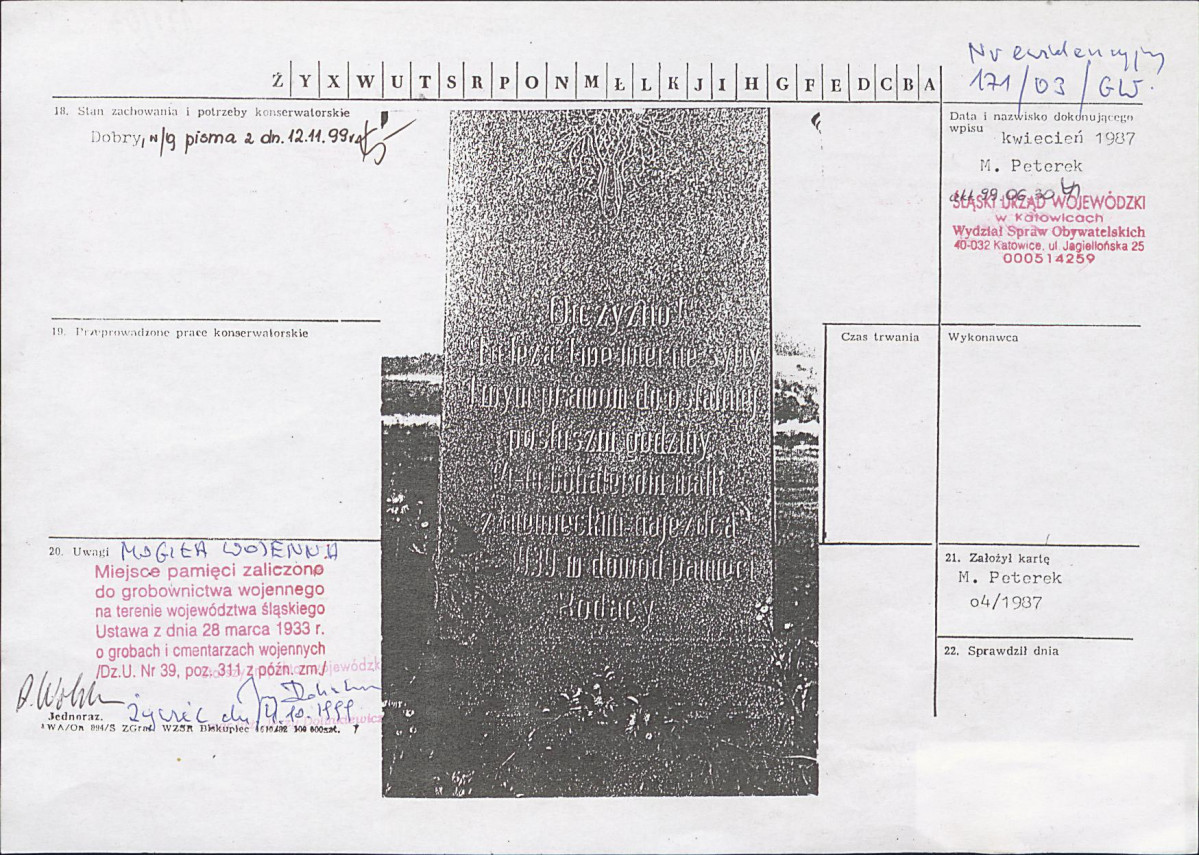 Nr ewidencyjny
171/03/GW.
Ż Y X W U T S R P O N M Ł L K J I H G F E D C B A
18. Stan zachowania i potrzeby konserwatorskie
Dobry, w/g pisma z dn. 12.11.99r.
Data i nazwisko dokonującego
wpisu
kwiecień 1987
M. Peterek
99.06.30
ŚLĄSKI URZĄD WOJEWÓDZKI
w Katowicach
Wydział Spraw Obywatelskich
40-032 Katowice, ul. Jagiellońska 25
000514259
19. Przeprowadzone prace konserwatorskie
Czas trwania
Wykonawca
Ojczyzno!
Tu leżą Twe wierne syny
Twym prawom do ostatniej
posłuszni godziny
walki
z niemieckim najeźdźcą
1939 w dowód pamięci
Rodacy
20. Uwagi MOGIŁA WOJENNA
Miejsce pamięci zaliczono
do grobownictwa wojennego
na terenie województwa śląskiego
Ustawa z dnia 28 marca 1933 r.
o grobach i cmentarzach wojennych
/Dz.U. Nr 39, poz. 311 z późn. zm./
21. Założył kartę
M. Peterek
04/1987
22. Sprawdził dnia
Jednoraz.
Żywiec dn. 21.10.1999
WA/On 894/S ZGraf. WZSR Biskupiec